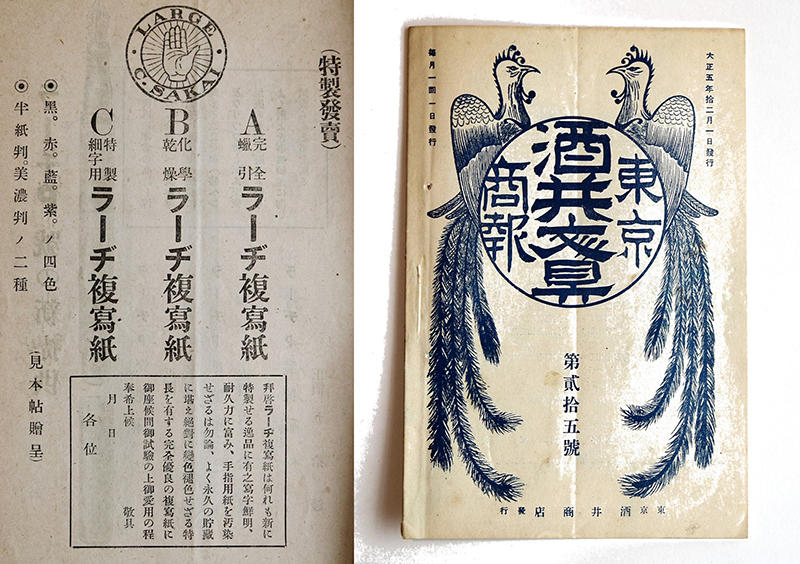 LARGE
C. SAKAI
(特製發賣)
A 完全蠟引 ラーヂ複寫紙
B 化學乾燥 ラーヂ複寫紙
C 特製細字用 ラーヂ複寫紙
◉黑。赤。藍。紫。ノ四色
◉半紙判。美濃判ノ二種
(見本帖贈呈)
拜啓ラーヂ複寫紙は何れも新に
特製せる逸品に有之寫字鮮明、
耐久力に富み、手指用紙を汚染
せざるは勿論、よく永久の貯藏
に堪え絕對に變色褪色せざる特
長を有する完全優良の複寫紙に
御座候間御試驗の上御愛用の程
奉希上候 敬具
月 日
各位
大正五年拾二月一日發行
每月一回一日發行
東京
酒井文具
商報
第貳拾五號
東京 酒井商店 發行